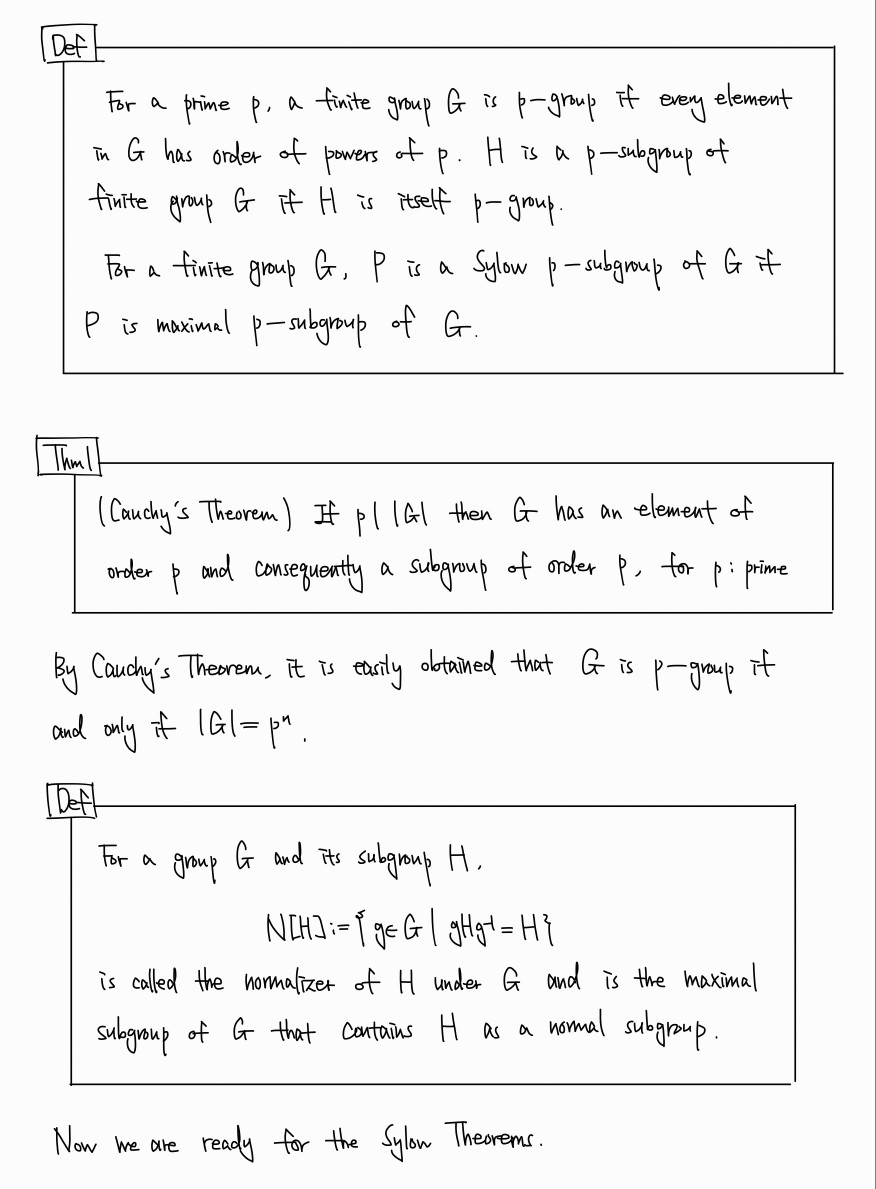 Def
For a prime p, a finite group G is p-group if every element
in G has order of powers of p. H is a p-subgroup of
finite group G if H is itself p-group.
For a finite group G, P is a Sylow p-subgroup of G if
P is maximal p-subgroup of G.
Thm1
(Cauchy's Theorem) If p | |G| then G has an element of
order p and consequently a subgroup of order p, for p : prime
By Cauchy's Theorem, it is easily obtained that G is p-group if
and only if |G| = pⁿ.
Def
For a group G and its subgroup H,
N[H] := { g∈G | gHg⁻¹ = H }
is called the normalizer of H under G and is the maximal
subgroup of G that contains H as a normal subgroup.
Now we are ready for the Sylow Theorems.